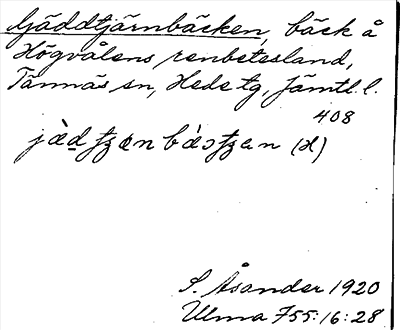 Gäddtjärnbäcken, bäck å
Högvålens renbetesland,
Tännäs sn, Hede tg, Jämtl. l.
408
(d)
S. Åsander 1920
Ulma 755:16:28